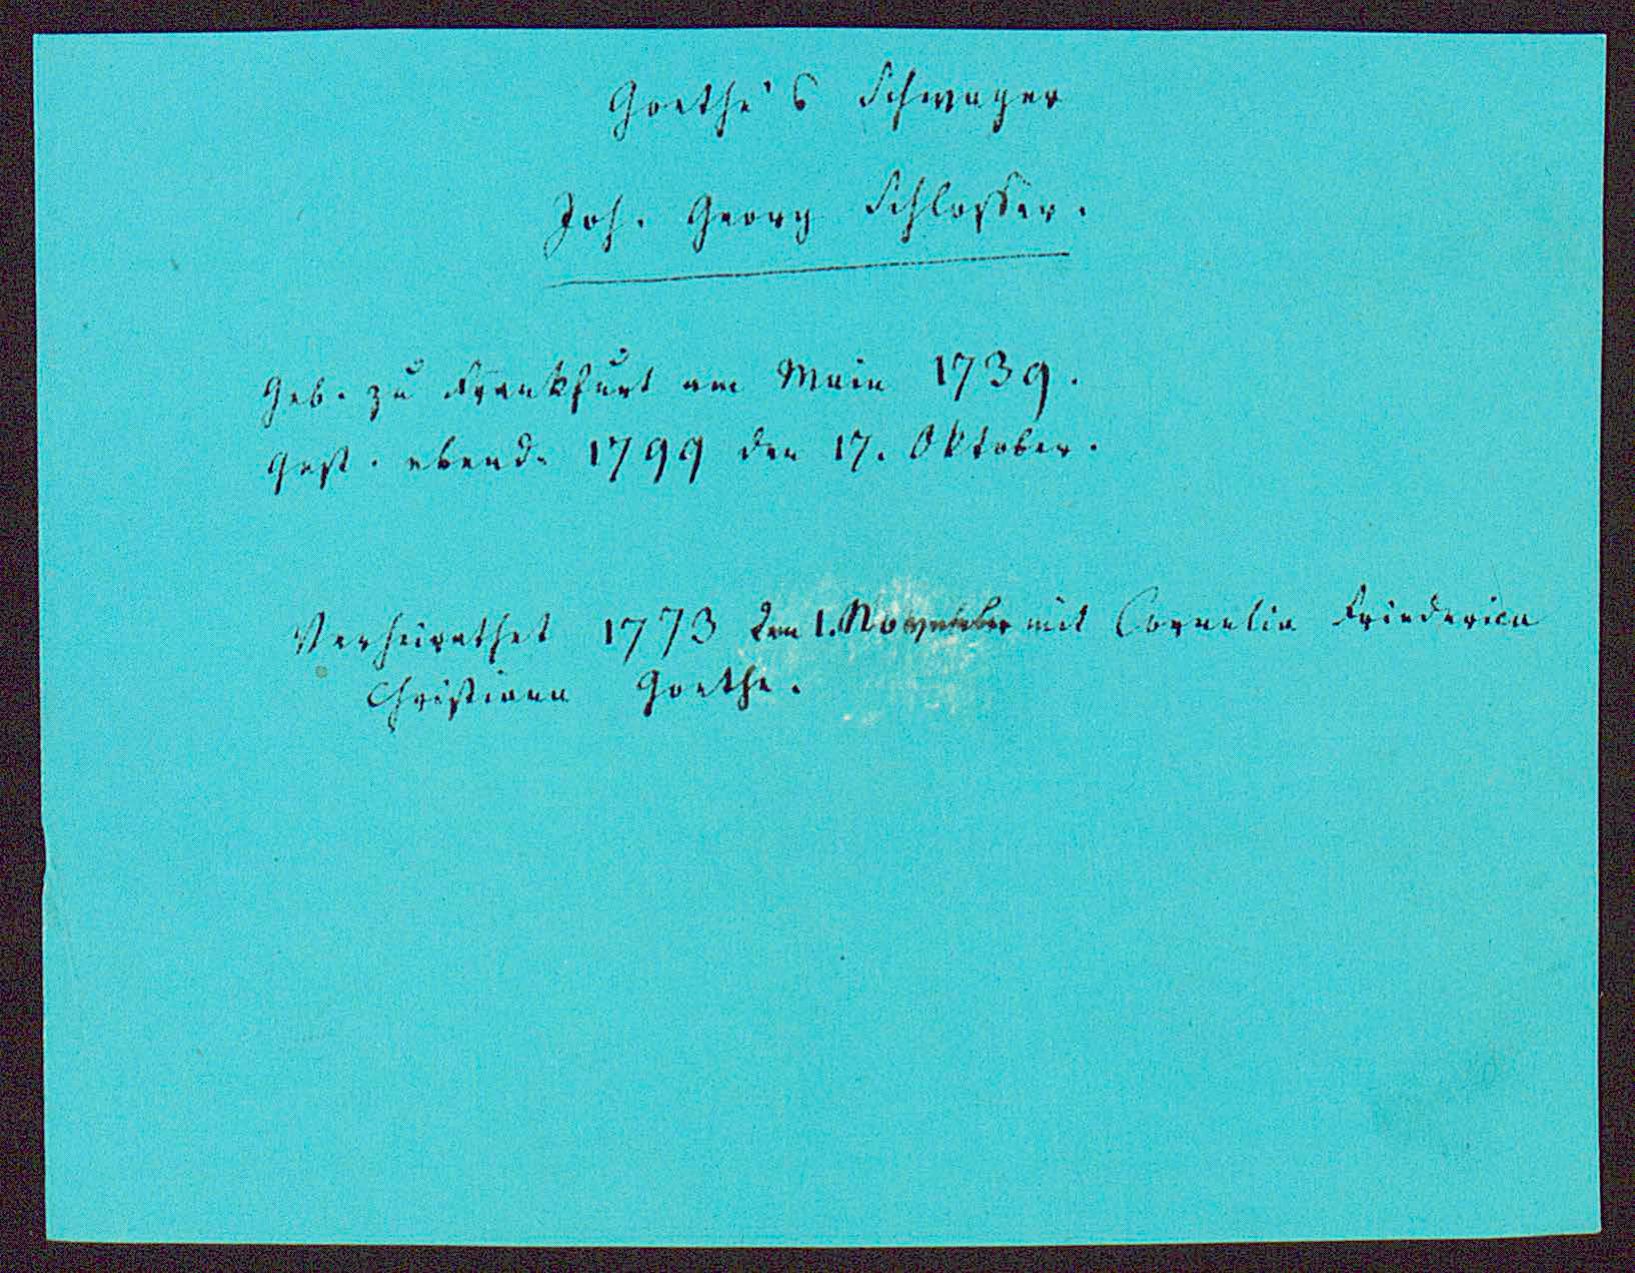 Goethe's Schwager
Joh. Georg Schlosser.
Geb. zu Frankfurt am Main 1739.
Gest. ebend. 1799 den 17. Oktober.
Verheirathet 1773 den 1. November mit Cornelia Friederica
Christiana Goethe.